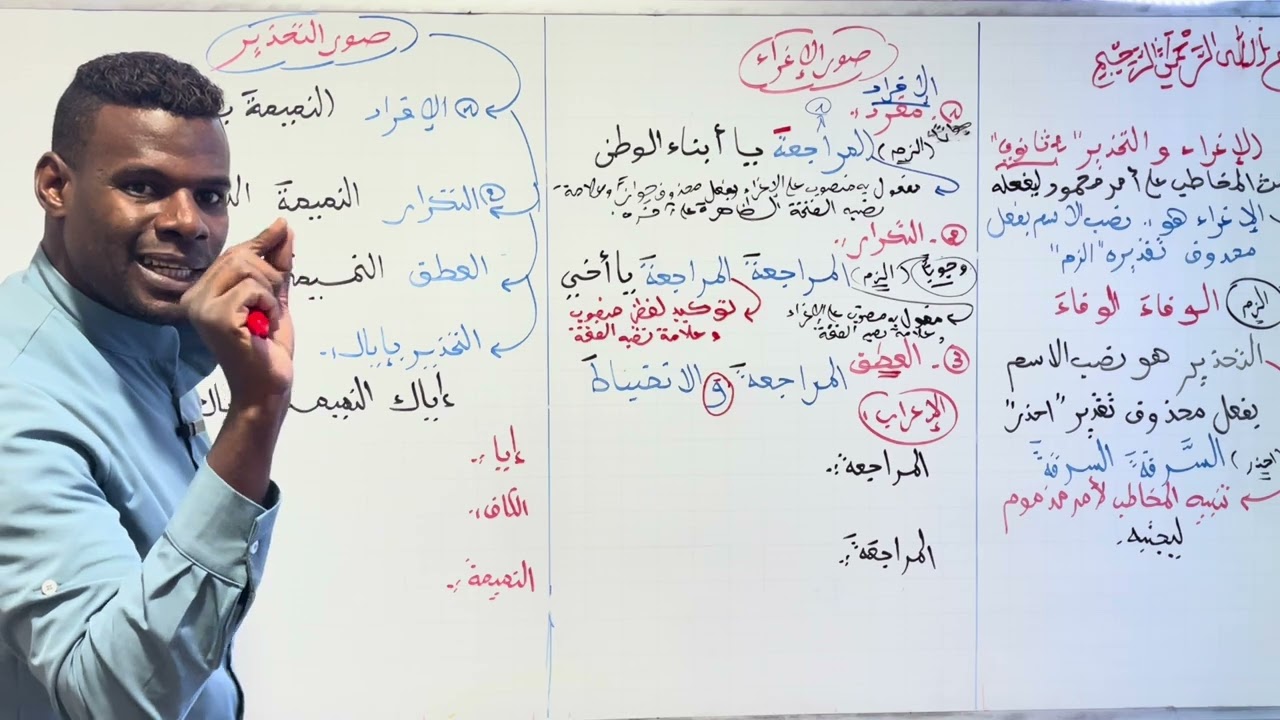 الله الرحمن الرحيم
الإغراء و التحذير "٤ ثانوي"
المخاطب على أمر محمود ليفعله
الإغراء هو: نصب الاسم بفعل
محذوف تقديره "الزم"
الزم الوفاءَ الوفاءَ
التحذير هو نصب الاسم
بفعل محذوف تقدير "احذر"
(احذر) السَّرقةَ السرقةَ
تنبيه المخاطب لأمر مذموم
ليجتنبه.
صور الإغراء
الإفراد
١. مفرد:
(الزم) المراجعةَ يا أبناء الوطن
مفعول به منصوب على الإغراء بفعل محذوف جوازًا وعلامة
نصبه الفتحة الظاهرة على آخره.
٢. التكرار:
وجوباً (الزم) المراجعةَ المراجعةَ يا أخي
مفعول به منصوب على الإغراء
وعلامة نصبه الفتحة
توكيد لفظي منصوب
وعلامة نصبه الفتحة
٣. العطف المراجعةَ و الانضباطَ
الإعراب:
المراجعة:
المراجعة:
صور التحذير
١ الإفراد النميمةَ
٢ التكرار النميمةَ
العطف النميمة
التحذير بإياك:
إياك النميمة
إيا:
الكاف:
النميمة: